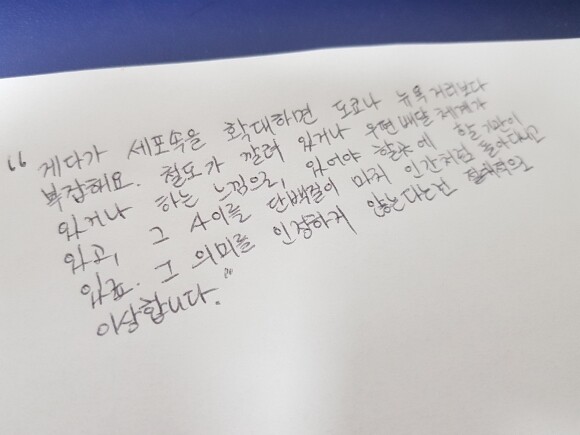 “ 게다가 세포속을 확대하면 도쿄나 뉴욕 거리보다
복잡해요. 철도가 깔려 있거나 우편배달 체계가
있거나 하는 느낌으로, 있어야 할곳에 할 기관이
있고, 그 사이를 단백질이 마치 인간처럼 돌아다니고
있죠. 그 의미를 인정하지 않는다는건 절대적으로
이상합니다. ”